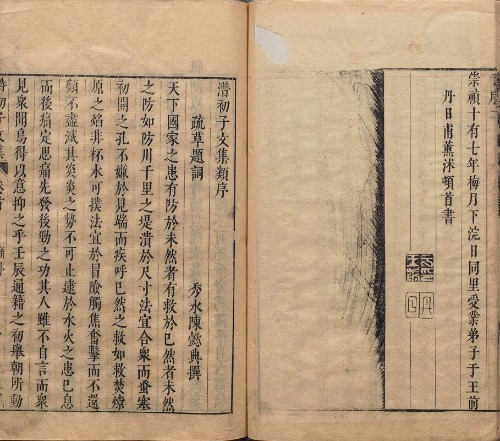 崇禎十有七年梅月下浣日同里受業弟子于王前
丹日甫薰沐頓首書
潛初子文集類序
疏草題詞
秀水陳懿典撰
天下國家之患有防於未然者有救於已然者未然
之防如防川千里之堤潰於尺寸法宜合衆而蚤塞
初開之孔不嫌於見端而疾呼已然之救如救焚燎
原之焰非杯水可撲法宜於冒險觸焦奮擊而不還
顧不盡滅其炎炎之勢不可止逮於水火之患已息
而後痛定思痛先發後勁之功其人雖不自言而衆
見衆聞烏得以意抑之乎壬辰通籍之初舉朝所動
潛初子文集